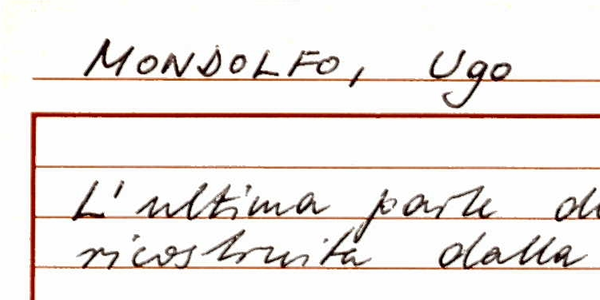 MONDOLFO, Ugo
L'ultima parte
ricostruita dalla